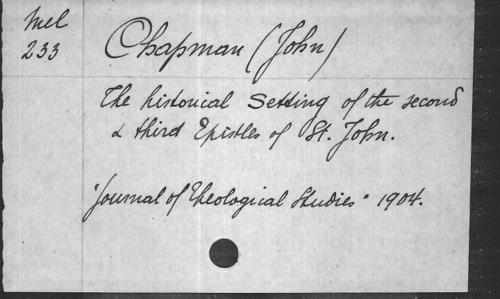 Mel
233
Chapman (John)
The historical Setting of the second
& third Epistles of St. John.
"Journal of Theological Studies" 1904.